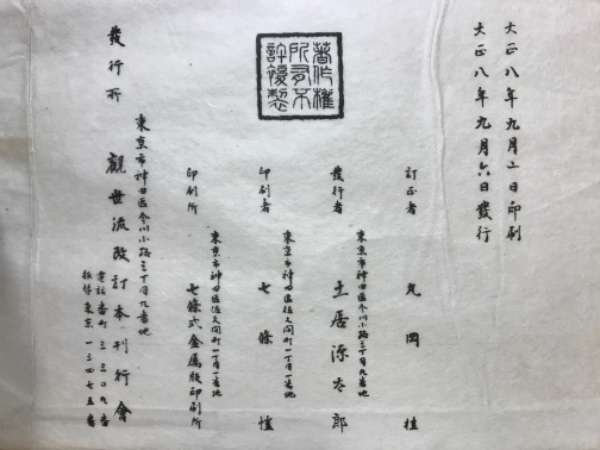 大正八年九月二日印刷
大正八年九月六日發行
著作權
所有不
許複製
訂正者 丸岡桂
東京市神田區今川小路三丁目九番地
發行者 土居源太郎
東京市神田區佐久間町一丁目一番地
印刷者 七條愃
東京市神田區佐久間町一丁目一番地
印刷所 七條式金属版印刷所
東京市神田區今川小路三丁目九番地
發行所 觀世流改訂本刊行會
電話番町三三〇九番
振替東京一三四七五番